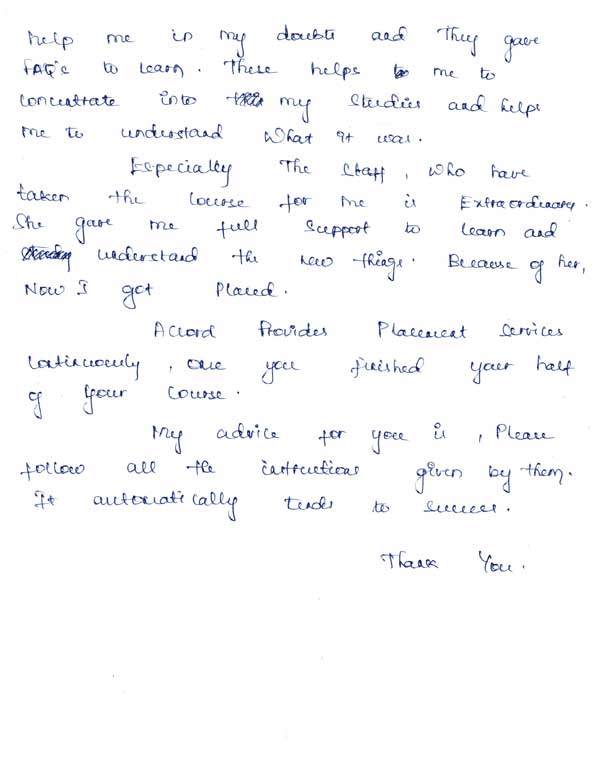 help me in my doubts and They gave
FAQ's to learn. These helps to me to
concentrate into my studies and helps
me to understand What it was.
Especially The Staff, who have
taken the course for me is Extraordinary.
She gave me full support to learn and
understand the new things. Because of her,
Now I got Placed.
Accord Provides Placement Services
continuously, once you finished your half
of your course.
My advice for you is, Please
follow all the instructions given by them.
It automatically tends to success.
Thank You.